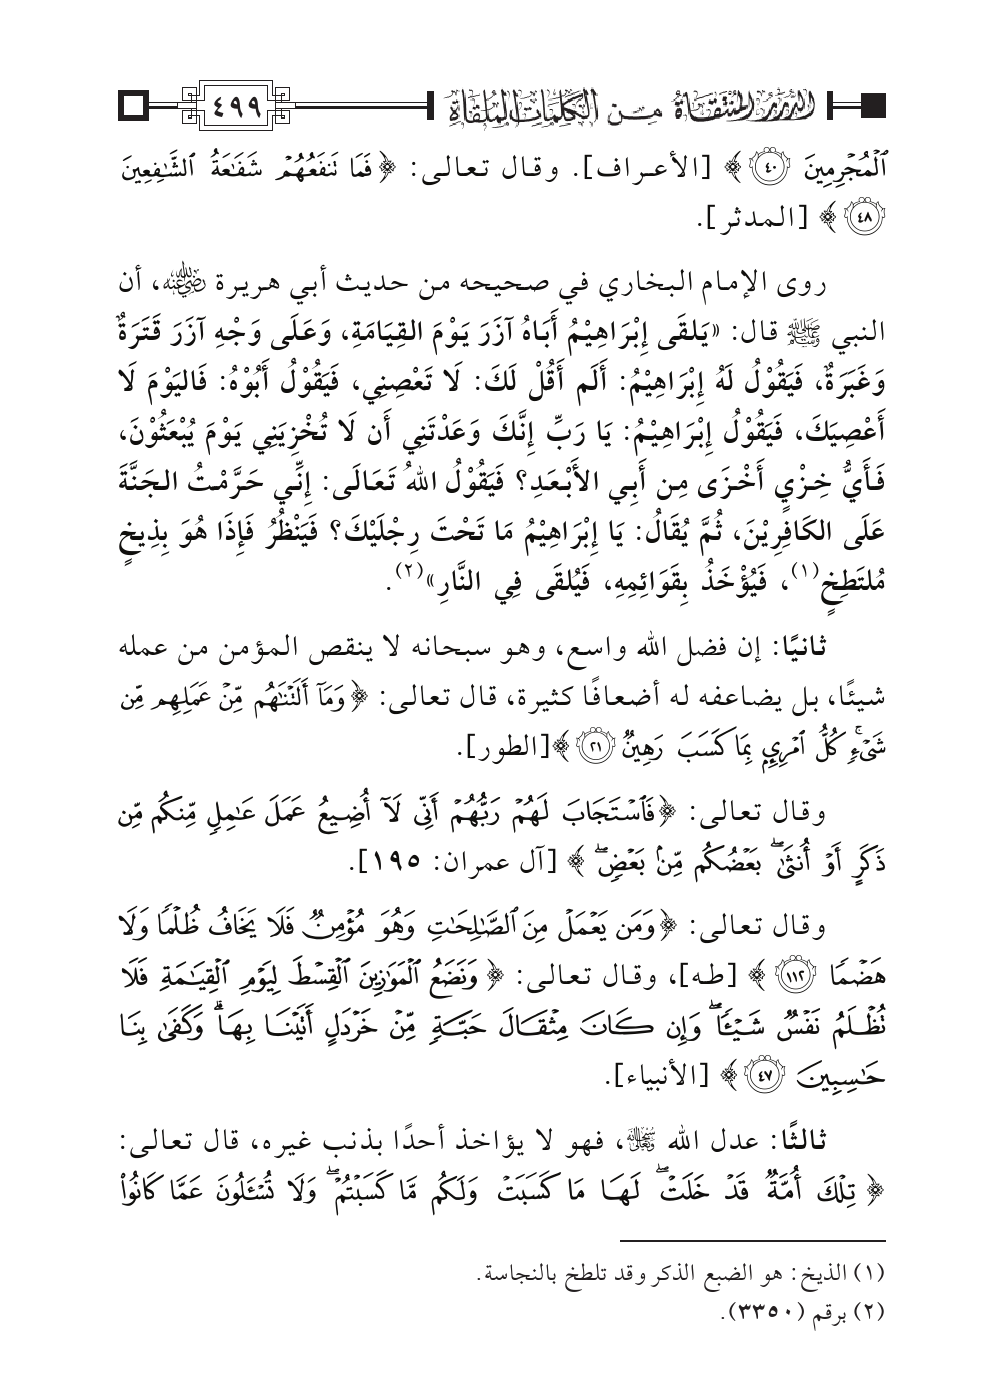 الدرر المنتقاة من الكلمات الملقاة ٤٩٩
ٱلْمُجْرِمِينَ ٤٠ ﴾ [الأعراف]. وقال تعالى: ﴿ فَمَا تَنفَعُهُمْ شَفَٰعَةُ ٱلشَّٰفِعِينَ
٤٨ ﴾ [المدثر].
روى الإمام البخاري في صحيحه من حديث أبي هريرة رضي الله عنه، أن
النبي ﷺ قال: «يَلقَى إِبْرَاهِيْمُ أَبَاهُ آزَرَ يَوْمَ القِيَامَةِ، وَعَلَى وَجْهِ آزَرَ قَتَرَةٌ
وَغَبَرَةٌ، فَيَقُوْلُ لَهُ إِبْرَاهِيْمُ: أَلَم أَقُلْ لَكَ: لَا تَعْصِنِي، فَيَقُوْلُ أَبُوْهُ: فَاليَوْمَ لَا
أَعْصِيَكَ، فَيَقُوْلُ إِبْرَاهِيْمُ: يَا رَبِّ إِنَّكَ وَعَدْتَنِي أَن لَا تُخْزِيَنِي يَوْمَ يُبْعَثُوْنَ،
فَأَيُّ خِزْيٍ أَخْزَى مِن أَبِي الأَبْعَدِ؟ فَيَقُوْلُ اللهُ تَعَالَى: إِنِّي حَرَّمْتُ الجَنَّةَ
عَلَى الكَافِرِيْنَ، ثُمَّ يُقَالُ: يَا إِبْرَاهِيْمُ مَا تَحْتَ رِجْلَيْكَ؟ فَيَنْظُرُ فَإِذَا هُوَ بِذِيخٍ
مُلتَطِخٍ(١)، فَيُؤْخَذُ بِقَوَائِمِهِ، فَيُلقَى فِي النَّارِ»(٢).
ثانيًا: إن فضل الله واسع، وهو سبحانه لا ينقص المؤمن من عمله
شيئًا، بل يضاعفه له أضعافًا كثيرة، قال تعالى: ﴿ وَمَآ أَلَتْنَٰهُم مِّنْ عَمَلِهِم مِّن
شَىْءٍۚ كُلُّ ٱمْرِئٍۭ بِمَا كَسَبَ رَهِينٌ ٢١ ﴾[الطور].
وقال تعالى: ﴿ فَٱسْتَجَابَ لَهُمْ رَبُّهُمْ أَنِّى لَآ أُضِيعُ عَمَلَ عَٰمِلٍ مِّنكُم مِّن
ذَكَرٍ أَوْ أُنثَىٰۖ بَعْضُكُم مِّنۢ بَعْضٍۖ ﴾ [آل عمران: ١٩٥].
وقال تعالى: ﴿ وَمَن يَعْمَلْ مِنَ ٱلصَّٰلِحَٰتِ وَهُوَ مُؤْمِنٌ فَلَا يَخَافُ ظُلْمًا وَلَا
هَضْمًا ١١٢ ﴾ [طه]، وقال تعالى: ﴿ وَنَضَعُ ٱلْمَوَٰزِينَ ٱلْقِسْطَ لِيَوْمِ ٱلْقِيَٰمَةِ فَلَا
تُظْلَمُ نَفْسٌ شَيْـًٔاۖ وَإِن كَانَ مِثْقَالَ حَبَّةٍ مِّنْ خَرْدَلٍ أَتَيْنَا بِهَاۗ وَكَفَىٰ بِنَا
حَٰسِبِينَ ٤٧ ﴾ [الأنبياء].
ثالثًا: عدل الله سبحانه وتعالى، فهو لا يؤاخذ أحدًا بذنب غيره، قال تعالى:
﴿ تِلْكَ أُمَّةٌ قَدْ خَلَتْۖ لَهَا مَا كَسَبَتْ وَلَكُم مَّا كَسَبْتُمْۖ وَلَا تُسْـَٔلُونَ عَمَّا كَانُوا۟
(١) الذيخ: هو الضبع الذكر وقد تلطخ بالنجاسة.
(٢) برقم (٣٣٥٠).